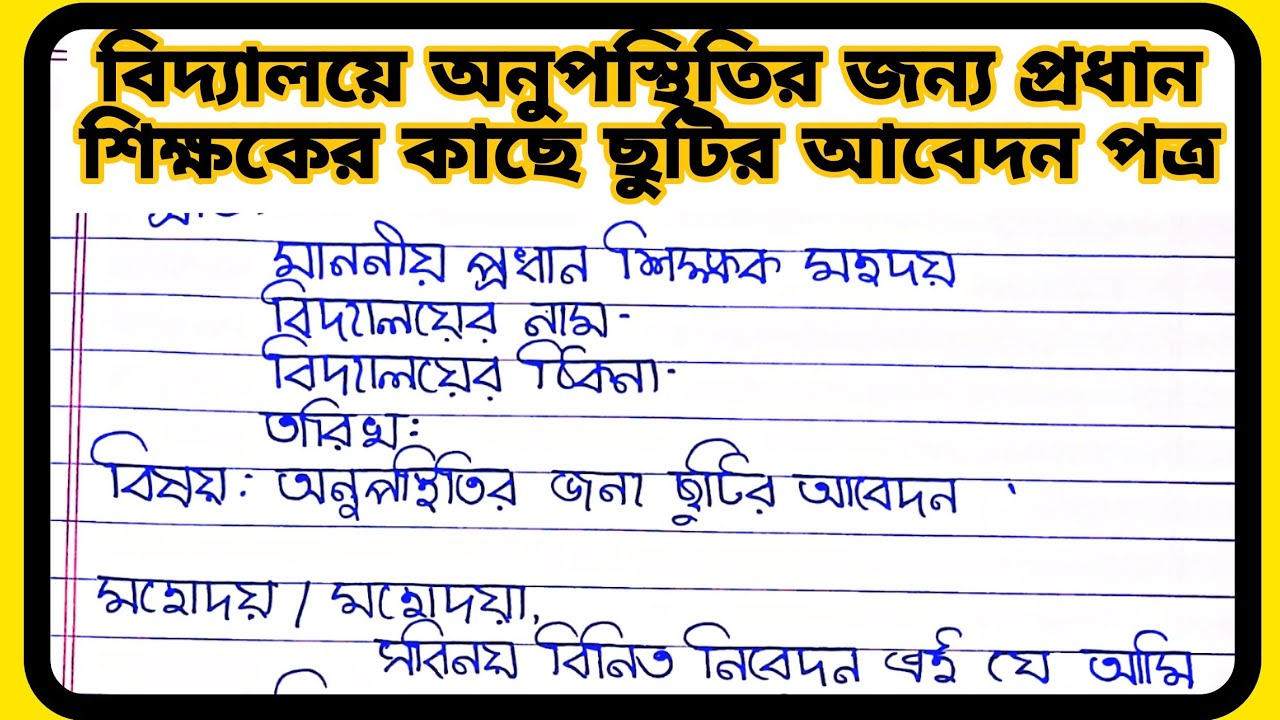 বিদ্যালয়ে অনুপস্থিতির জন্য প্রধান
শিক্ষকের কাছে ছুটির আবেদন পত্র
মাননীয় প্রধান শিক্ষক মহদয়
বিদ্যালয়ের নাম-
বিদ্যালয়ের ঠিকনা-
তারিখ:
বিষয়: অনুপস্থিতির জন্য ছুটির আবেদন
মহোদয় / মহোদয়া,
সবিনয় বিনিত নিবেদন এই যে আমি